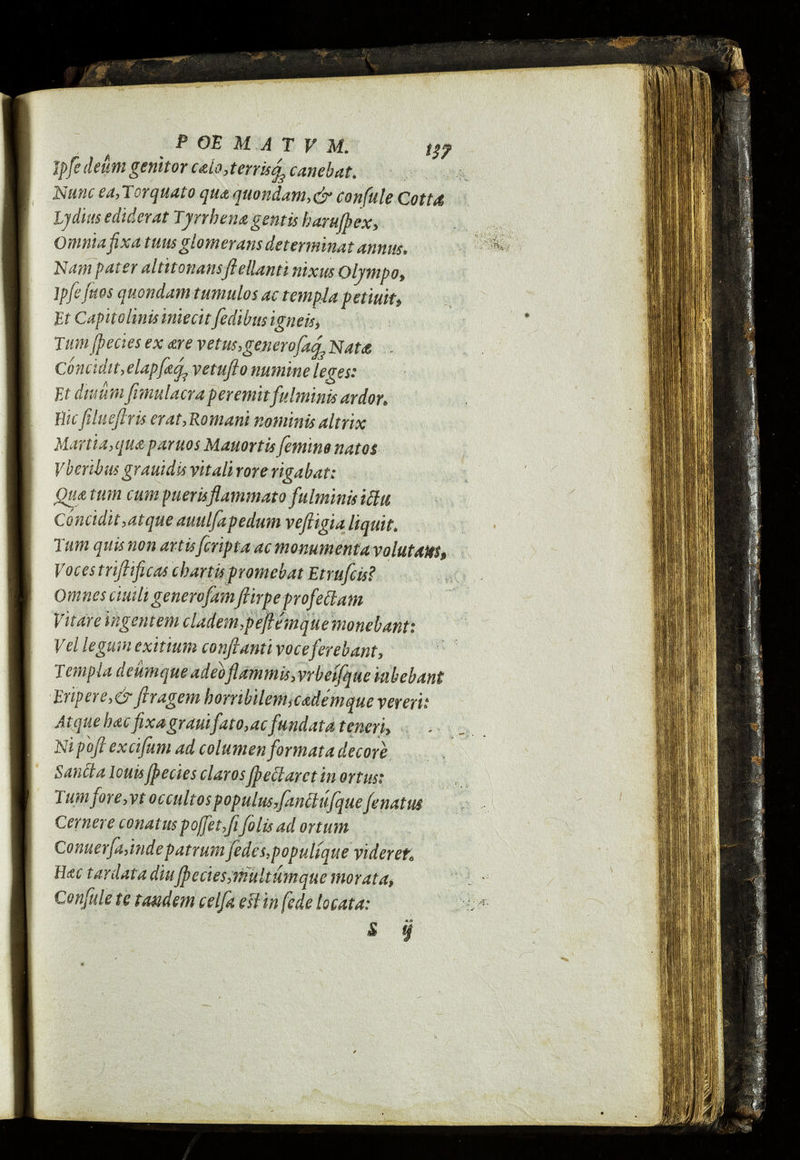 POEMATVM. 137
Ipſe deûm genitor cælo,terrisq́; canebat.
Nunc ea,Torquato quæ quondam,& conſule Cotta
Lydius ediderat Tyrrhenæ gentis haruſpex,
Omnia fixa tuus glomerans determinat annus.
Nam pater altitonans ſtellanti nixus Olympo,
Ipſe ſuos quondam tumulos ac templa petiuit,
Et Capitolinis iniecit ſedibus igneis,
Tum ſpecies ex ære vetus,generoſaq́; Nattæ
Concidit,elapſæq́; vetuſto numine leges:
Et diuûm ſimulacra peremit fulminis ardor.
Hic ſilueſtris erat,Romani nominis altrix
Martia,quæ paruos Mauortis ſemine natos
Vberibus grauidis vitali rore rigabat:
Quæ tum cum pueris flammato fulminis ictu
Concidit,atque auulſa pedum veſtigia liquit.
Tum quis non artis ſcripta ac monumenta volutans,
Voces triſtificas chartis promebat Etruſcis?
Omnes ciuili generoſam ſtirpe profectam
Vitare ingentem cladem,peſtémque monebant:
Vel legum exitium conſtanti voce ferebant,
Templa deûmque adeò flammis,vrbeíſque iubebant
Eripere,& ſtragem horribilem,cædémque vereri:
Atque hæc fixa graui fato,ac fundata teneri,
Ni pòſt exciſum ad columen formata decorè
Sancta Iouis ſpecies claros ſpectaret in ortus:
Tum fore,vt occultos populus,ſanctúſque ſenatus
Cernere conatus poſſet,ſi ſolis ad ortum
Conuerſa,inde patrum ſedes,populíque videret.
Hæc tardata diu ſpecies,multúmque morata,
Conſule te tandem celſa eſt in ſede locata:
S ij